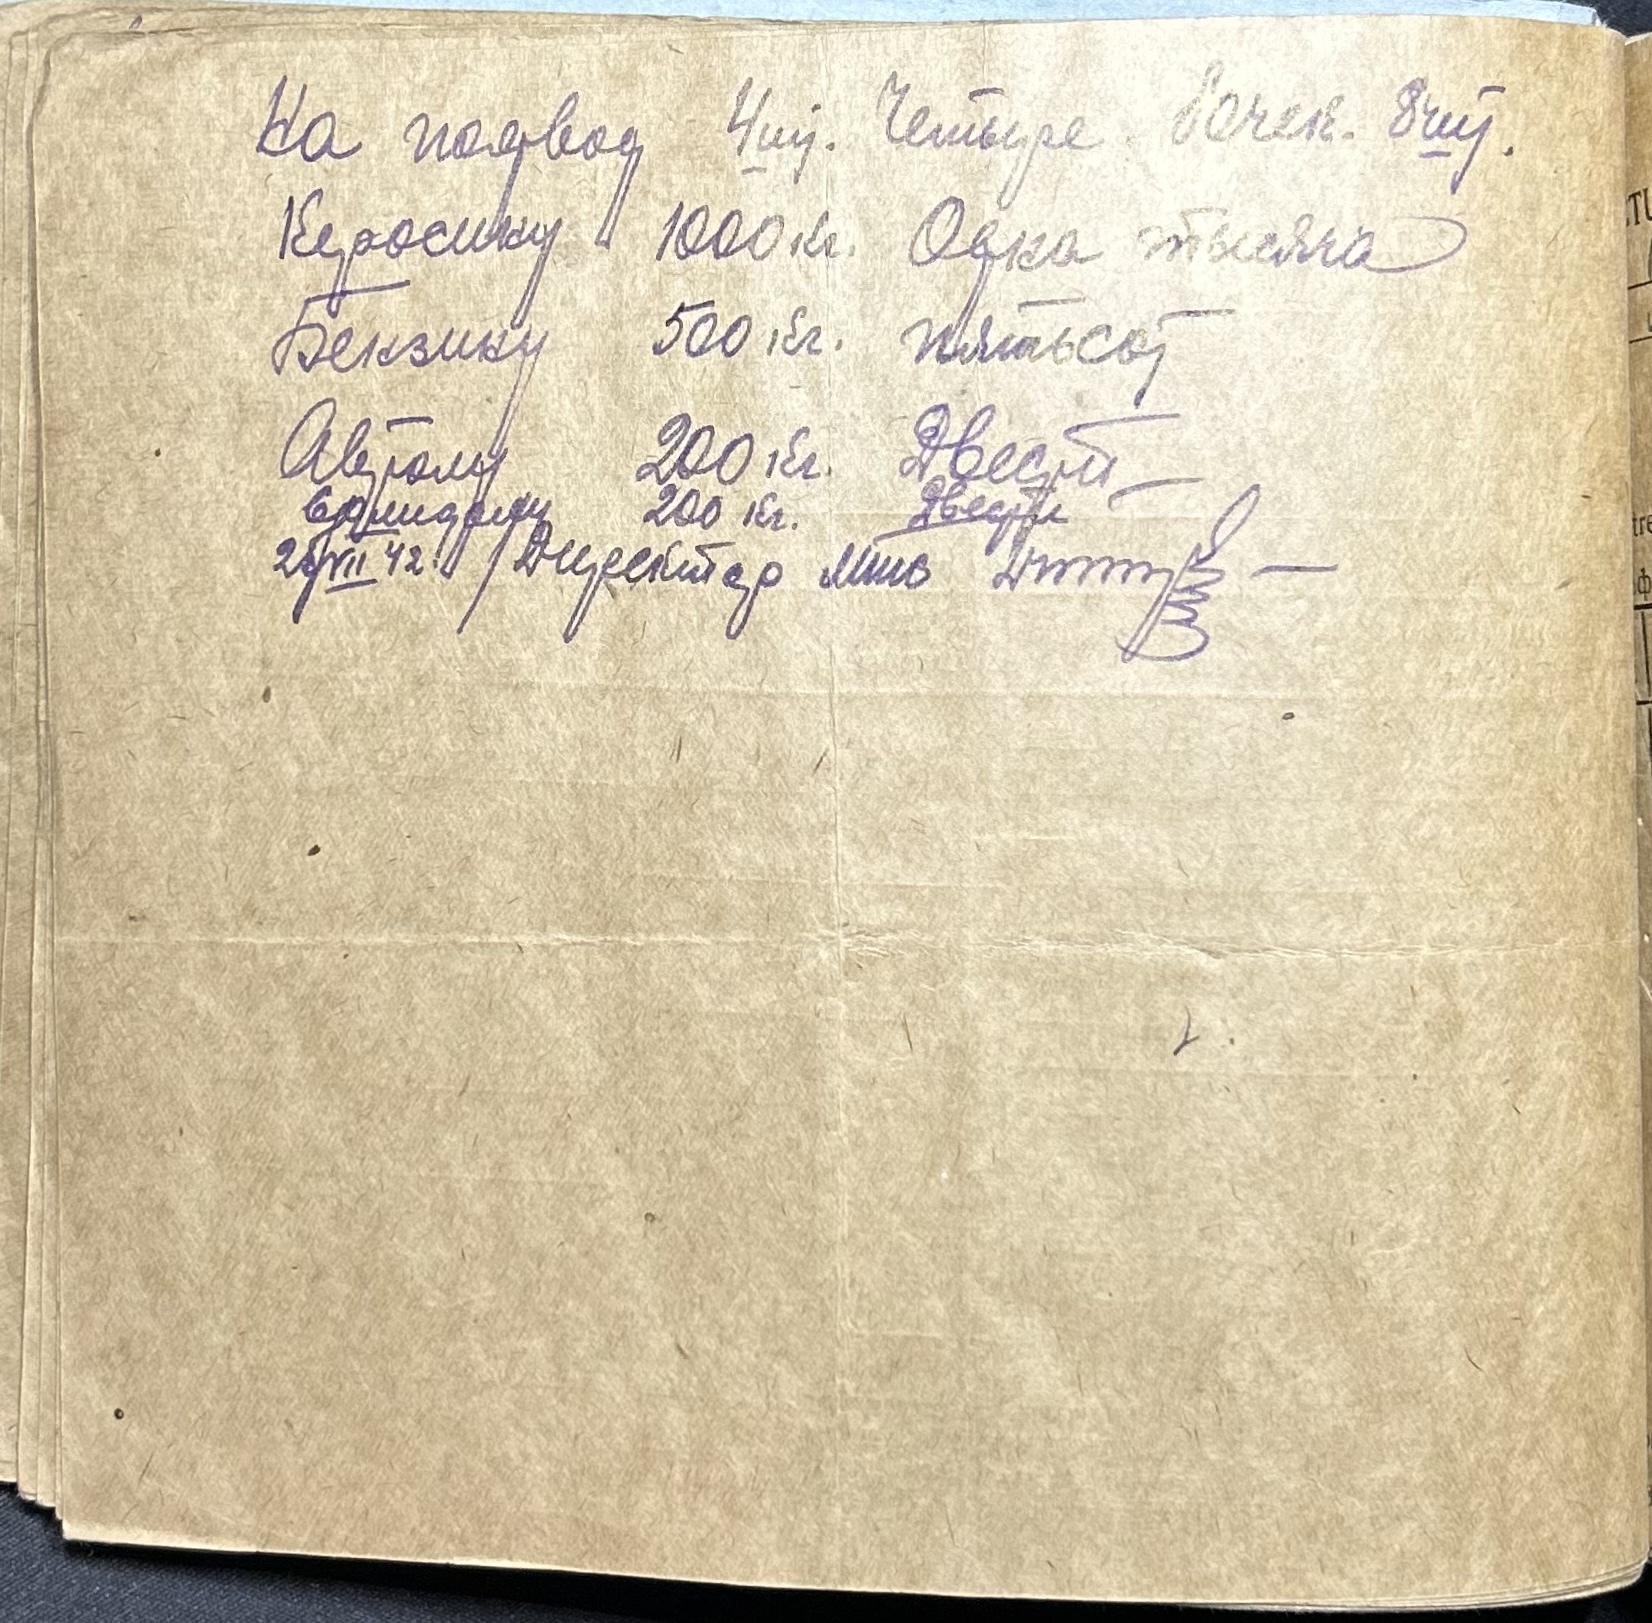 На подвод 4 шт. Четыре бочек. 8 шт.
Керосину 1000 кг. Одна тысяча
Бензину 500 кг. пятьсот
Автолу 200 кг. Двести
Солидолу 200 кг. Двести
VII 42. Директор Мтс